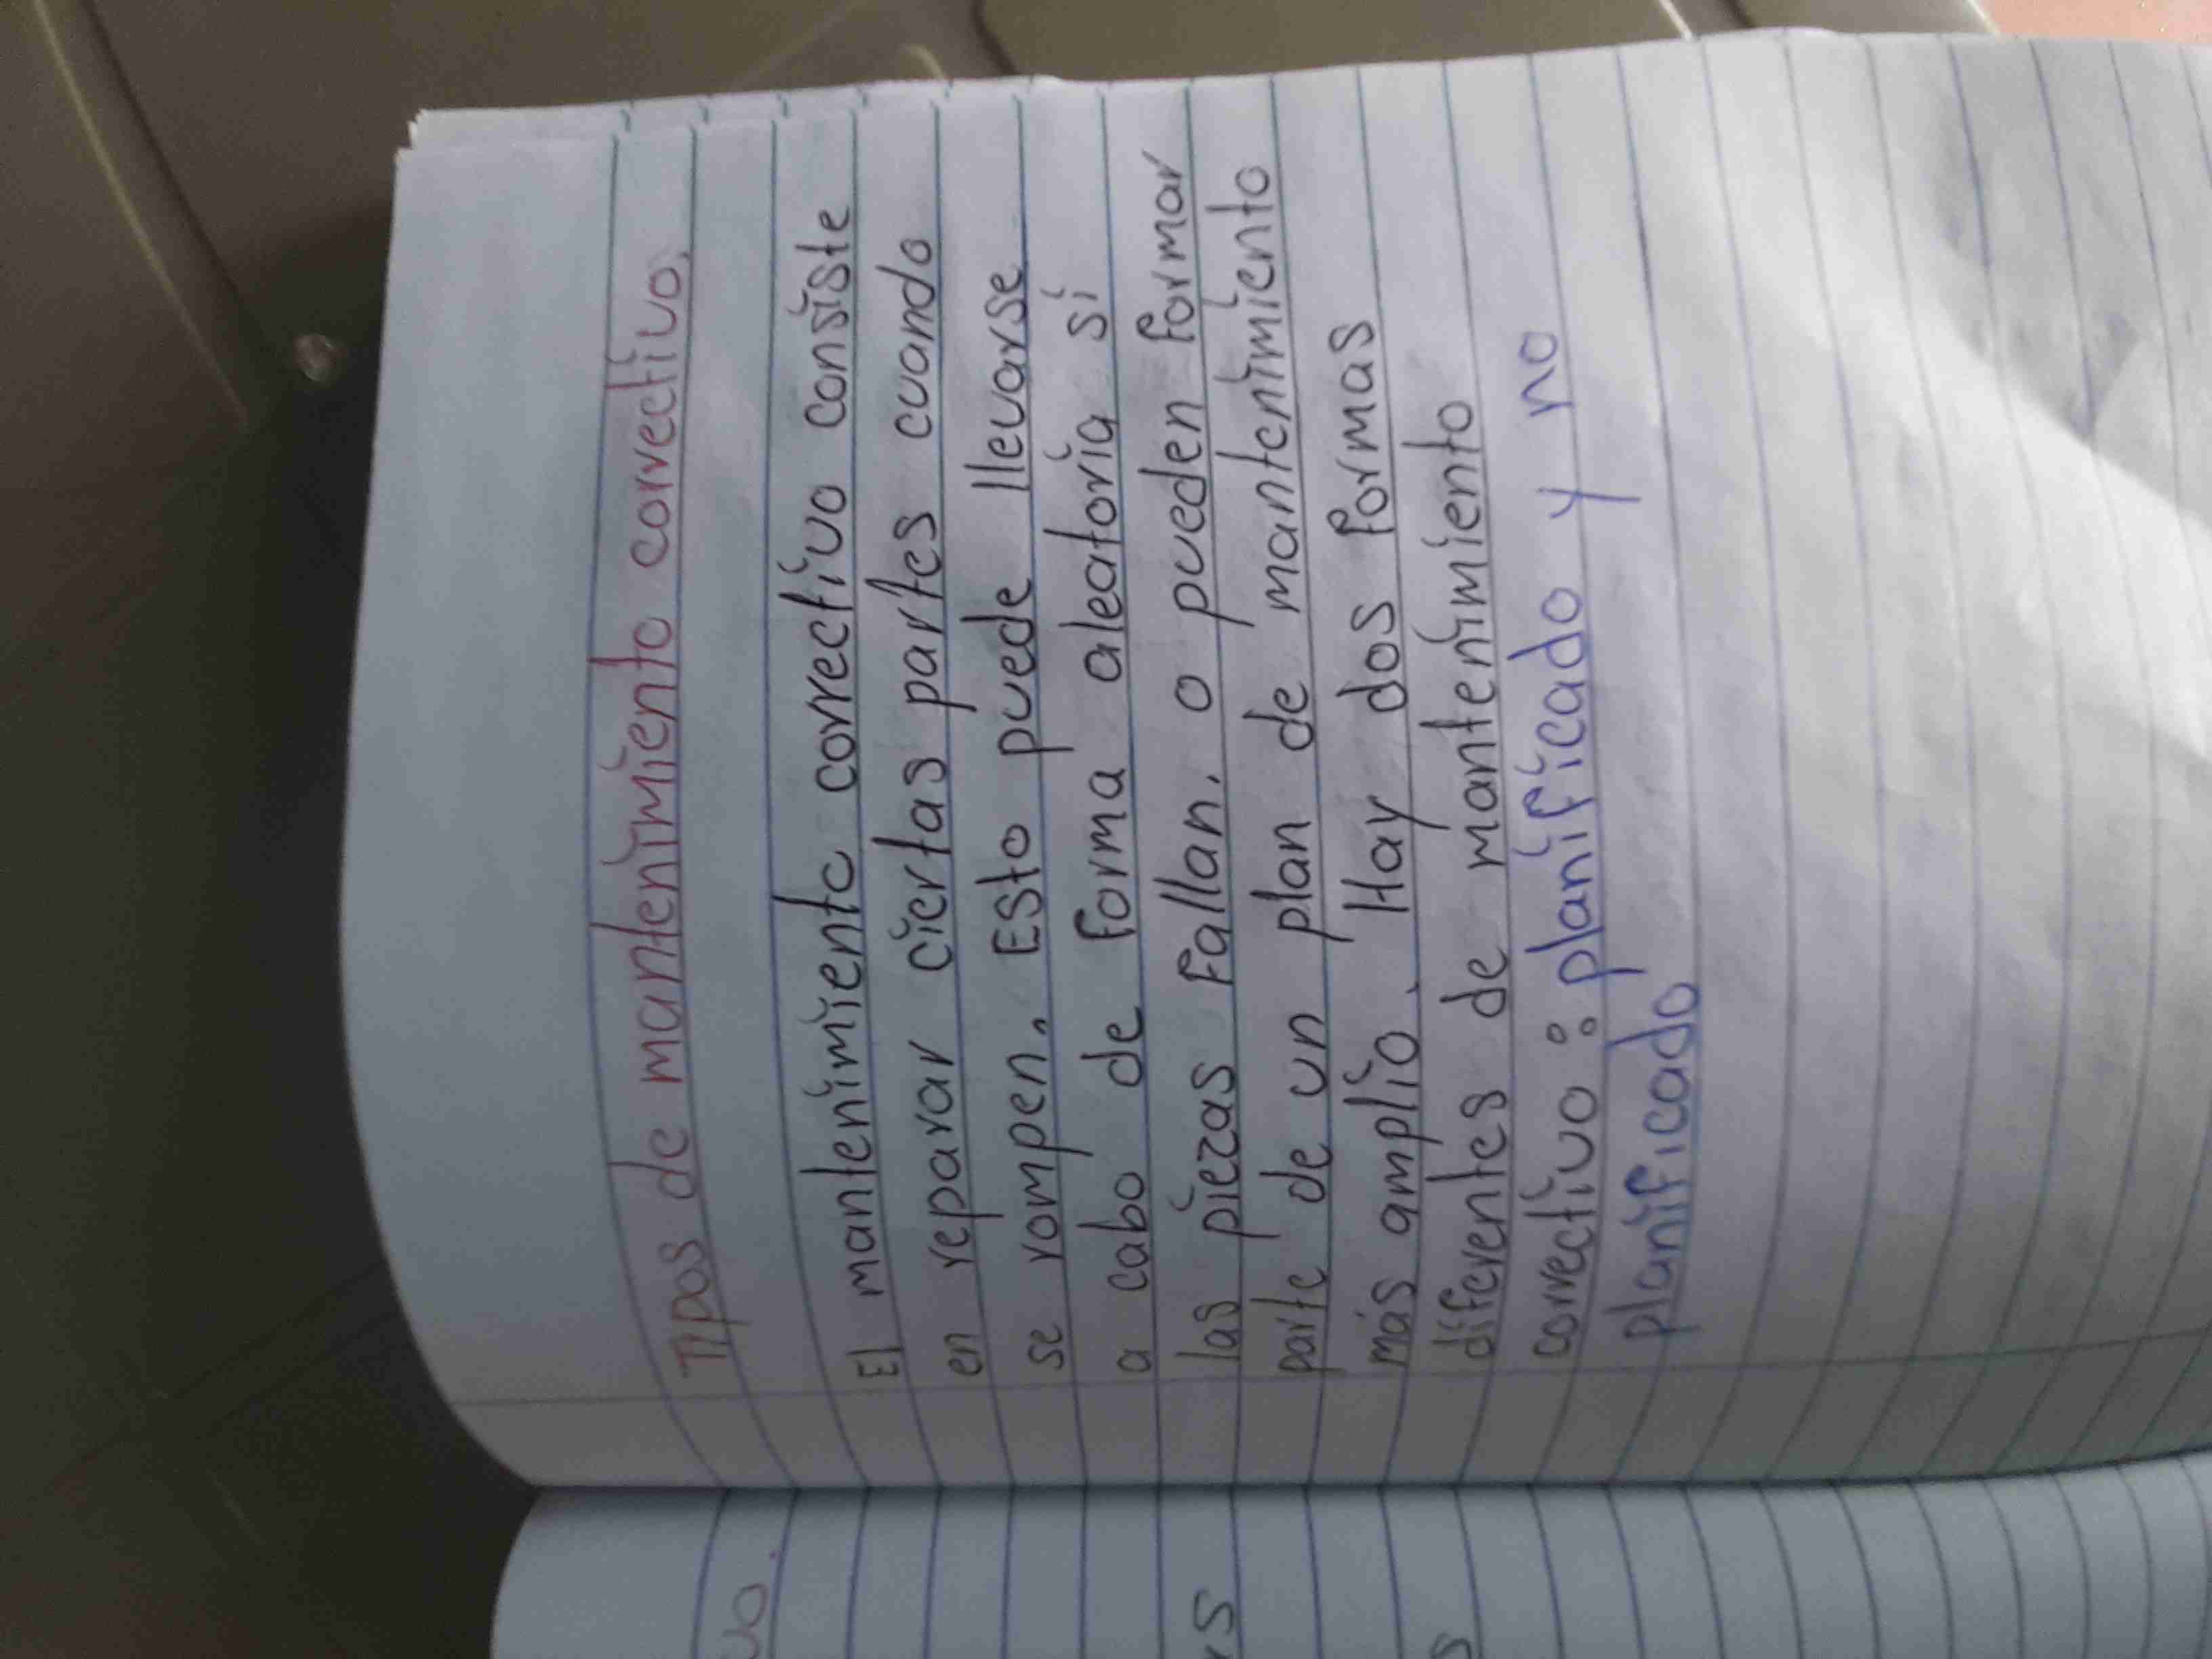 Tipos de mantenimiento correctivo.
El mantenimiento correctivo consiste
en reparar ciertas partes cuando
se rompen. Esto puede llevarse
a cabo de forma aleatoria si
las piezas fallan, o pueden formar
parte de un plan de mantenimiento
más amplio. Hay dos formas
diferentes de mantenimiento
correctivo: planificado y no
planificado